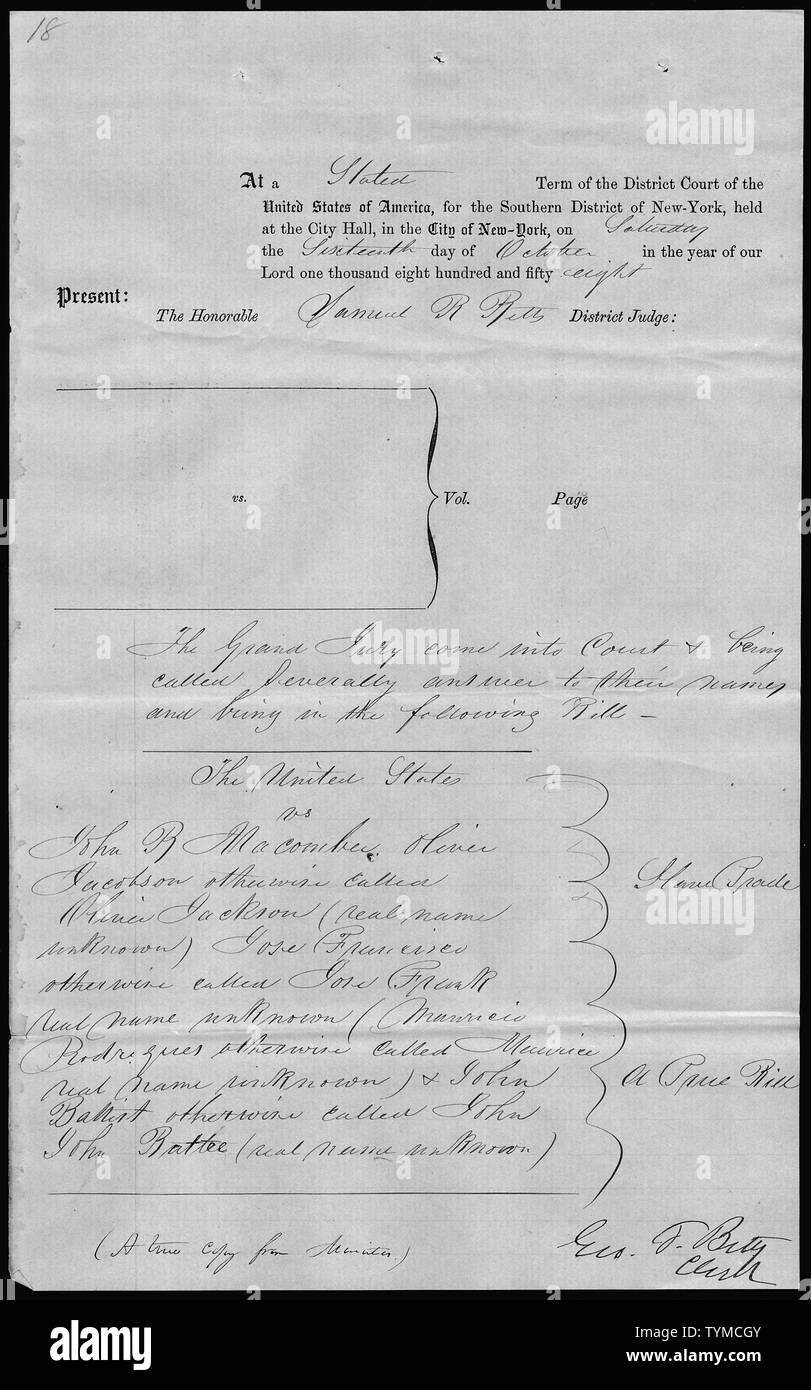 18
At a Stated Term of the District Court of the
United States of America, for the Southern District of New-York, held
at the City Hall, in the City of New-York, on Saturday
the Sixteenth day of October in the year of our
Lord one thousand eight hundred and fifty eight
Present:
The Honorable Samuel R Betts District Judge:
vs. Vol. Page
The Grand Jury come into Court & being
called Severally answer to their names
and bring in the following Bill –
The United States
vs
John B Macomber, Oliver
Jacobson otherwise called
Oliver Jackson (real name
unknown) Jose Francisco
otherwise called Jose Frank
real name unknown (Mauricio
Rodrigues otherwise called Maurice
real name unknown) & John
Batist otherwise called John
John Battee (real name unknown)
Slave Trade
A True Bill
(A true copy from Minutes)
Geo. F. Betts
Clerk
alamy
alamy
alamy
alamy
Image ID: TYMCGY
www.alamy.com